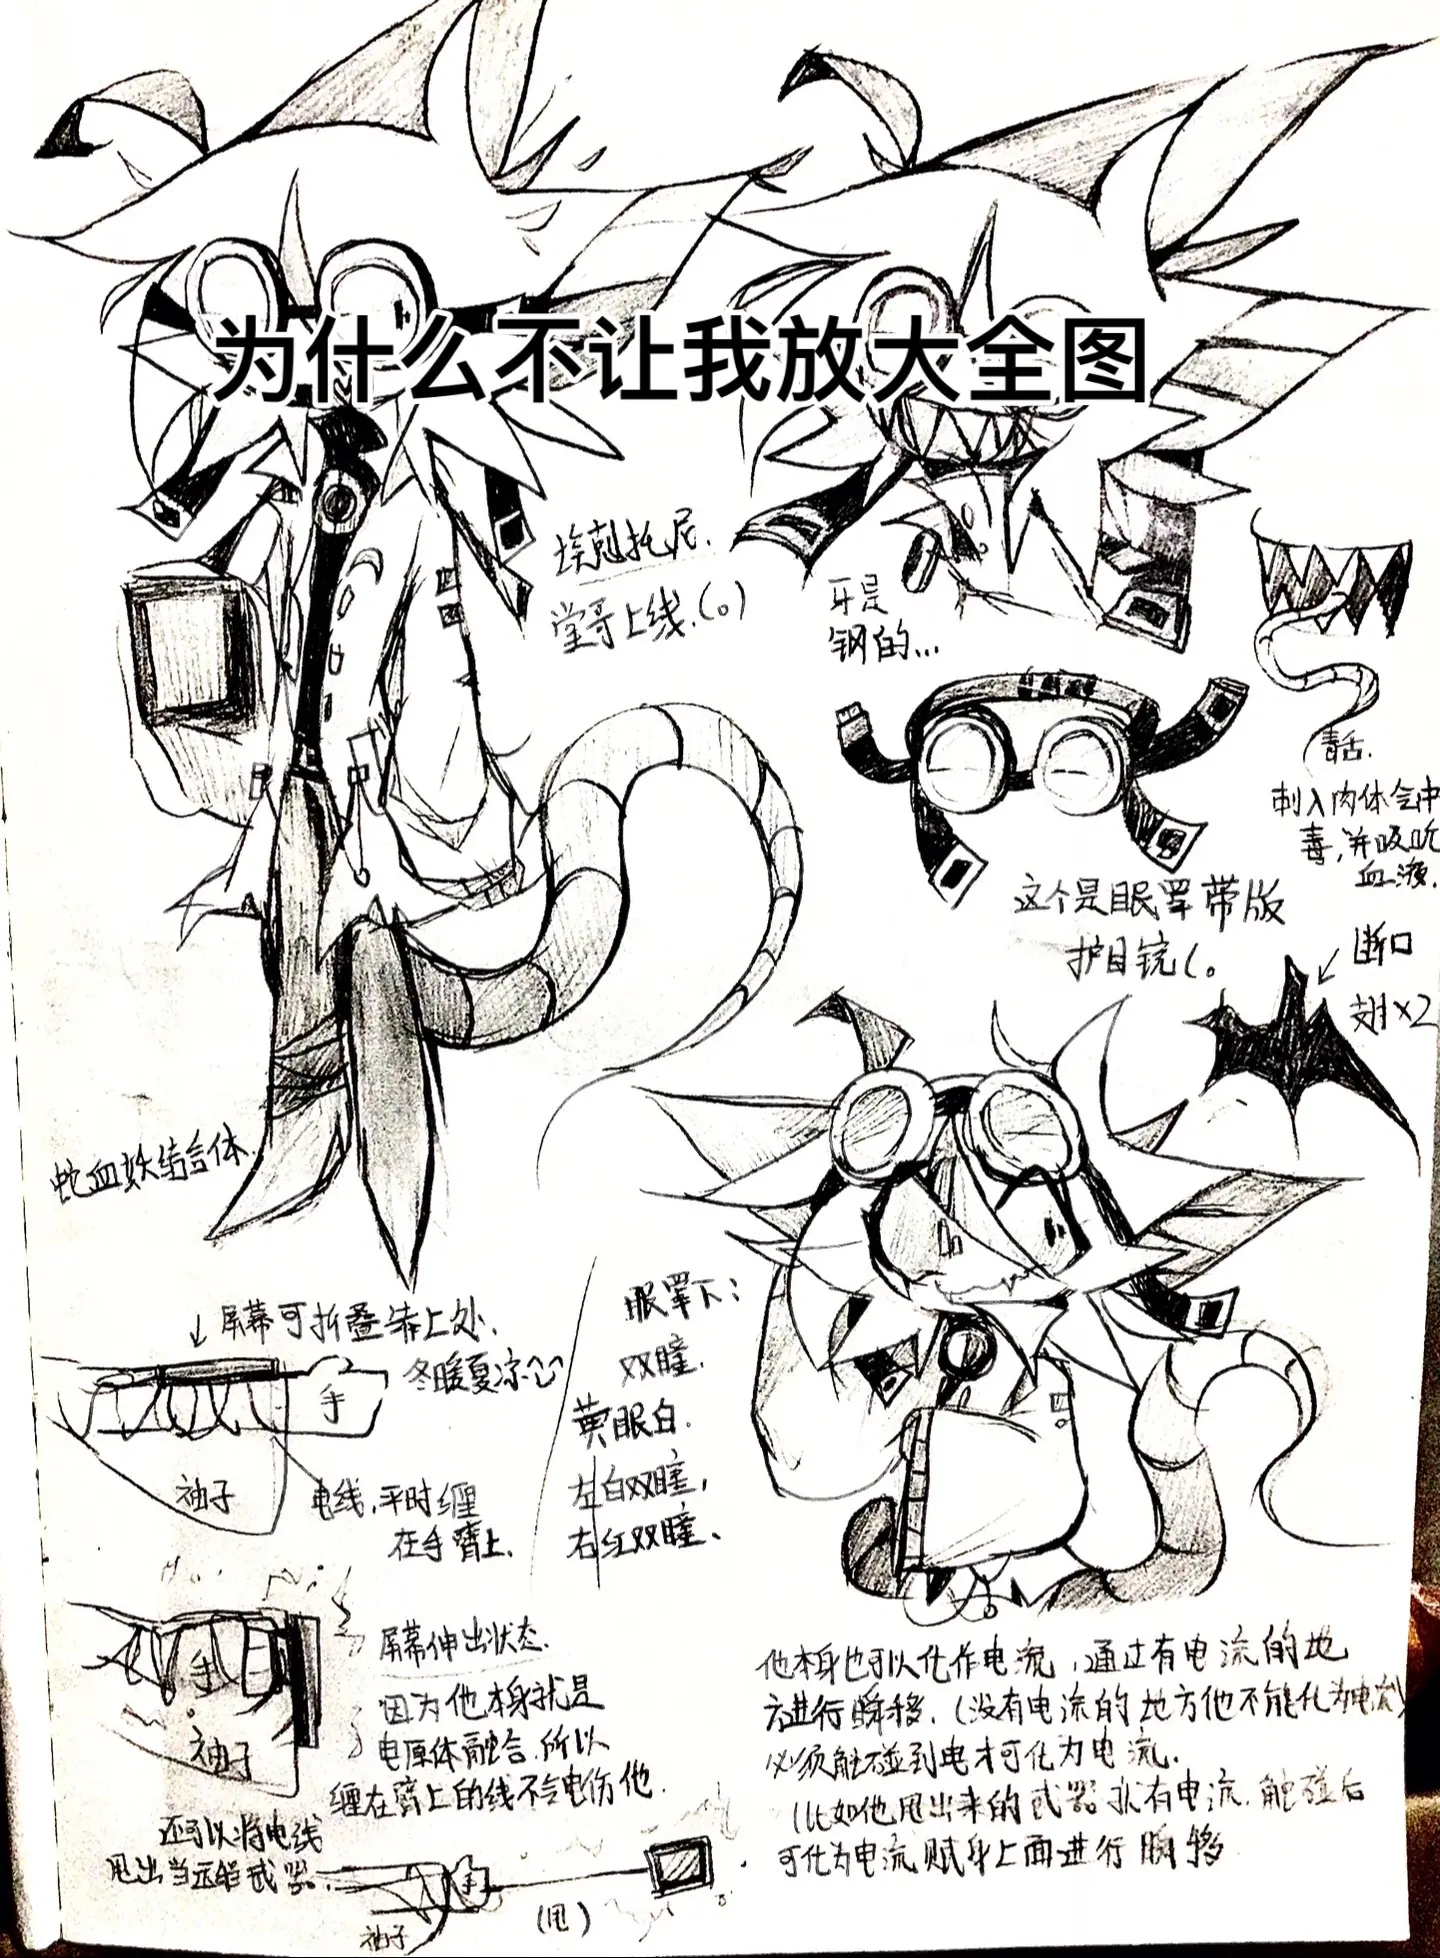 为什么不让我放大全图
埃剋托尼.
堂哥上线.(。)
牙是
钢的...
毒舌.
刺入肉体会中
毒,并吸吮
血液.
这个是眼罩带版
护目镜(。
断口
翅×2
蛇血妖结合体.
↓屏幕可折叠袖上处.
冬暖夏凉
手
袖子
电线,平时缠
在手臂上.
眼罩下:
双瞳.
黄眼白.
左白双瞳,
右红双瞳、
手
袖子
屏幕伸出状态.
因为他本身就是
电原体融合.所以
缠在臂上的线不会电伤他.
还可以将电线
甩出当远程武器.
手
袖子
(甩)
他本身也可以化作电流,通过有电流的地
方进行瞬移.(没有电流的地方他不能化为电流)
必须触碰到电才可化为电流.
(比如他甩出来的武器 有电流.触碰后
可化为电流赋身上面进行瞬移